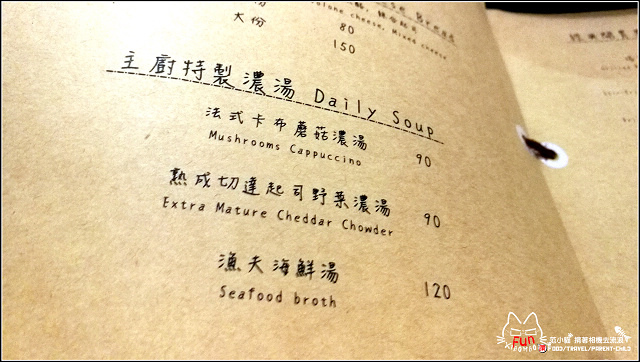 大份 80
150
主廚特製濃湯 Daily Soup
法式卡布蘑菇濃湯
Mushrooms Cappuccino 90
熟成切達起司野菜濃湯
Extra Mature Cheddar Chowder 90
漁夫海鮮湯
Seafood broth 120
Fun
FOOD/TRAVEL/PARENT-CHILD